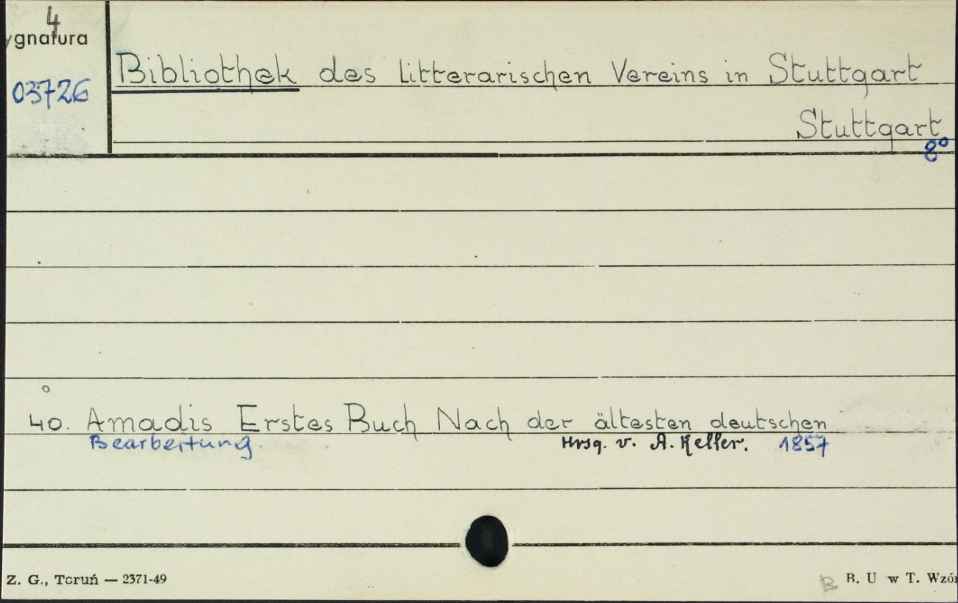 4
ygnatura
03726
Bibliothek des litterarischen Vereins in Stuttgart
Stuttgart
8°
40. Amadis Erstes Buch Nach der ältesten deutschen
Bearbeitung. Hrsg. v. A. Keller. 1857
Z. G., Toruń — 2371-49
B. U w T. Wzór